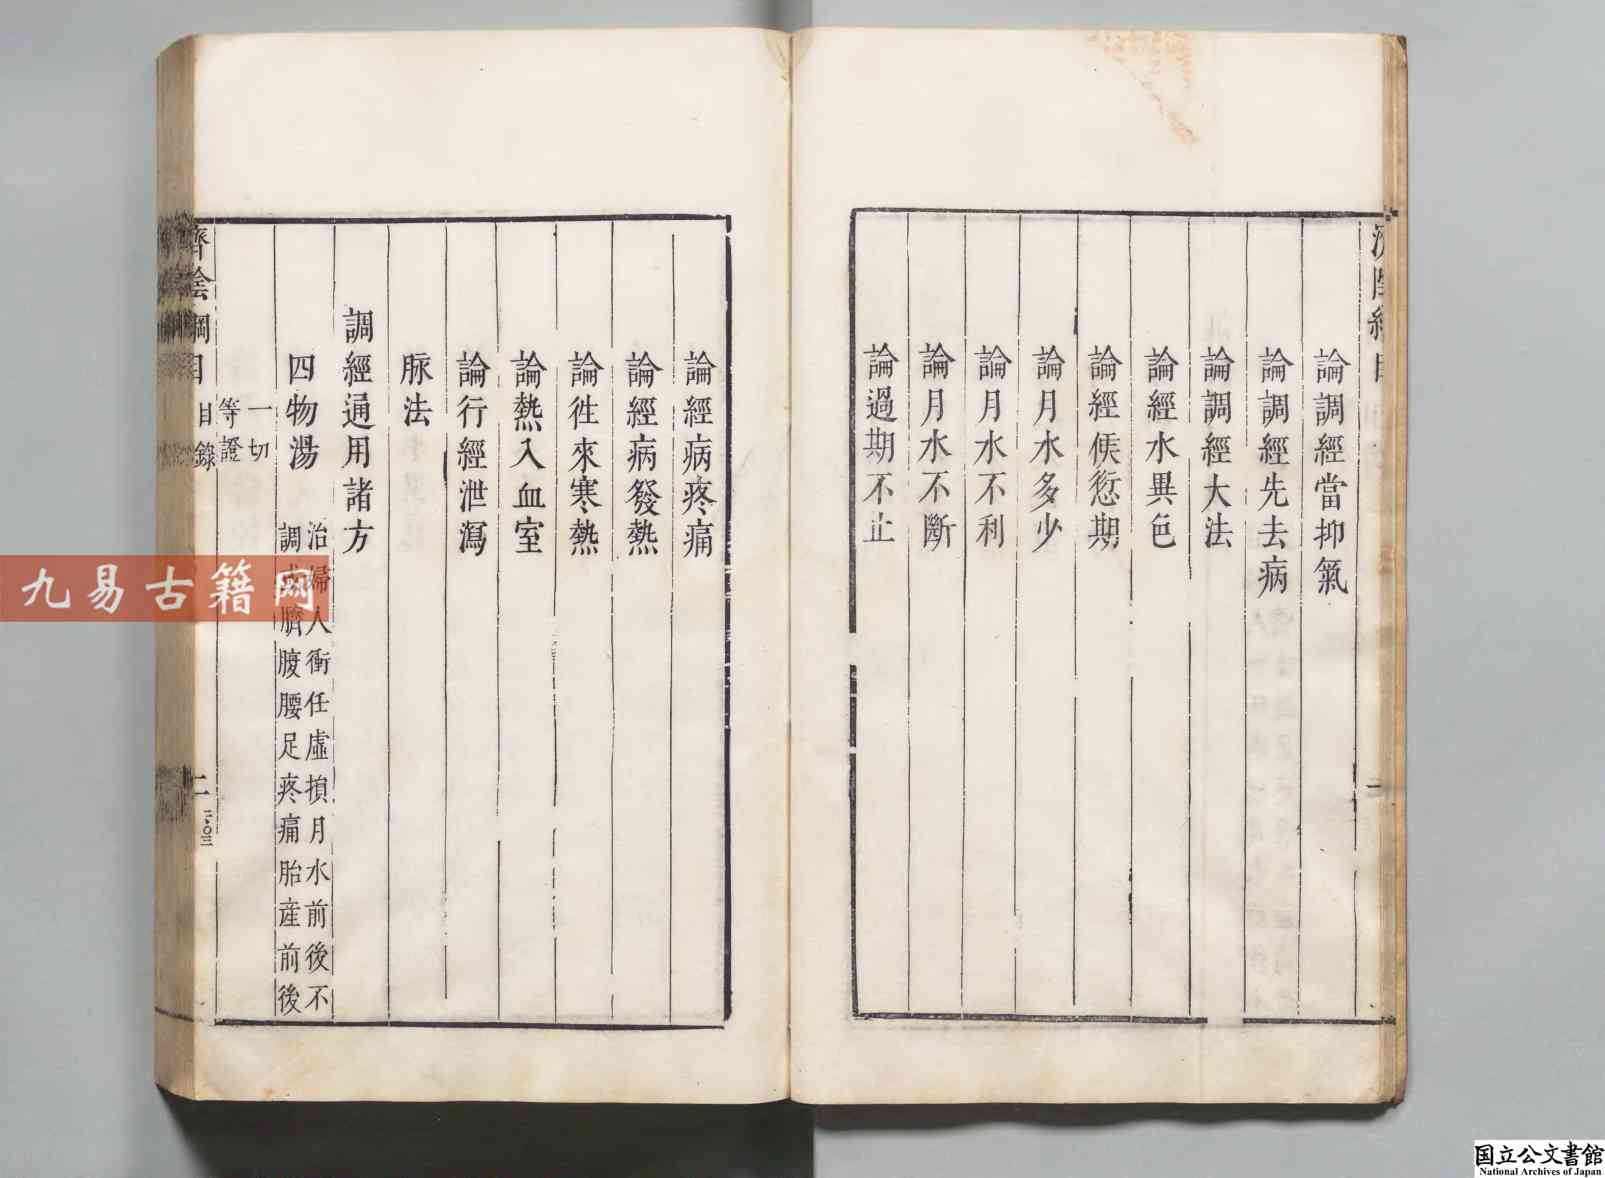 論調經當抑氣
論調經先去病
論調經大法
論經水異色
論經候愆期
論月水多少
論月水不利
論月水不斷
論過期不止
論經病疼痛
論經病發熱
論徃來寒熱
論熱入血室
論行經泄瀉
脉法
調經通用諸方
四物湯
治婦人衝任虛損月水前後不
調或臍腹腰足疼痛胎産前後
一切
等證
濟陰綱目
目錄
二
二〇三
九易古籍网
国立公文書館
National Archives of Japan